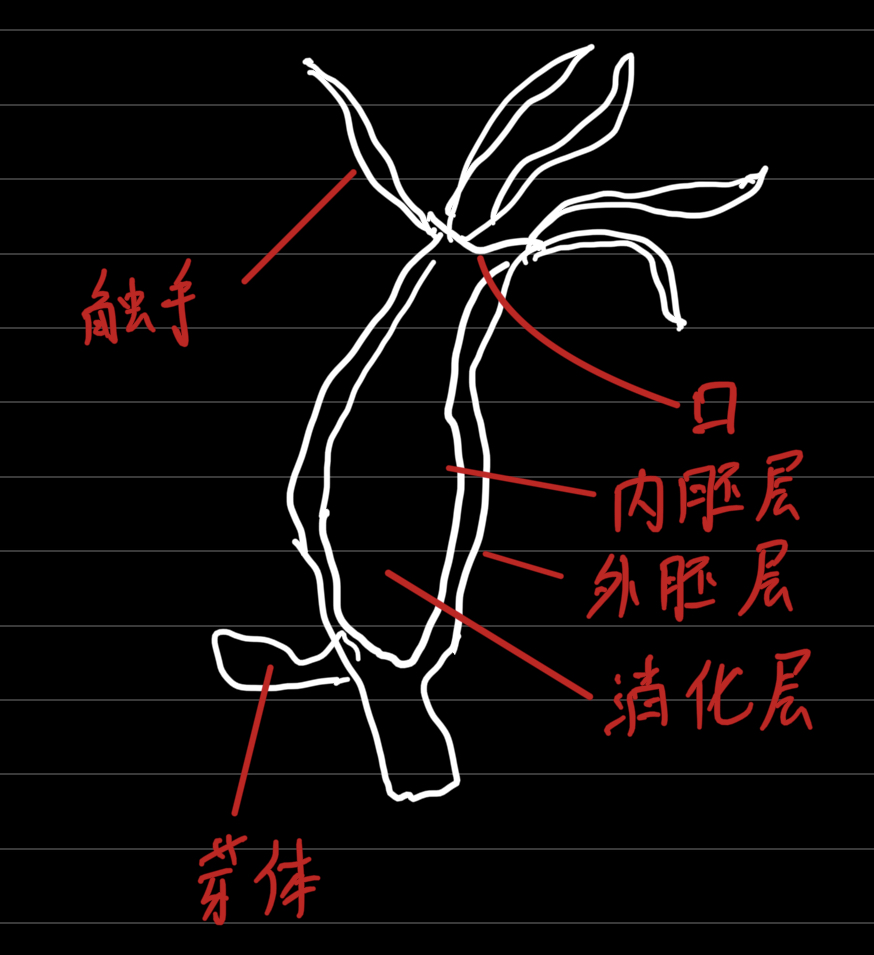 触手
口
内胚层
外胚层
消化层
芽体